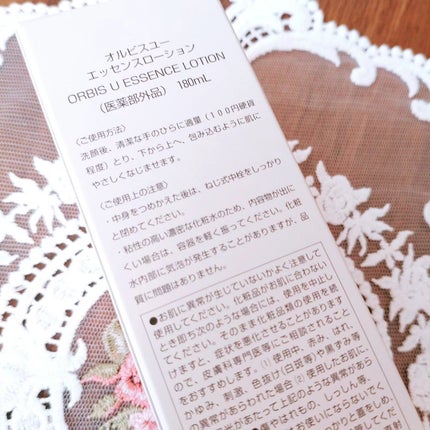 オルビスユー
エッセンスローション
ORBIS U ESSENCE LOTION
(医薬部外品) 180mL
〈ご使用方法〉
洗顔後、清潔な手のひらに適量(100円硬貨
程度)とり、下から上へ、包み込むように肌に
やさしくなじませます。
〈ご使用上の注意〉
・中身をつめかえた後は、ねじ式中栓をしっかり
と閉めてください。
・粘性の高い濃密な化粧水のため、内容物が出に
くい場合は、容器を軽く振ってください。化粧
水内部に気泡が発生することがありますが、品
質に問題はありません。
●お肌に異常が生じていないかよく注意して
使用してください。化粧品がお肌に合わない
とき即ち次のような場合には、使用を中止し
てください。そのまま化粧品類の使用を続
けますと、症状を悪化させることがあります
ので、皮膚科専門医等にご相談されること
をおすすめします。①使用中、赤み、はれ、
かゆみ、刺激、色抜け(白斑等)や黒ずみ等
の異常があらわれた場合②使用したお肌に
光があたって上記のような異常が